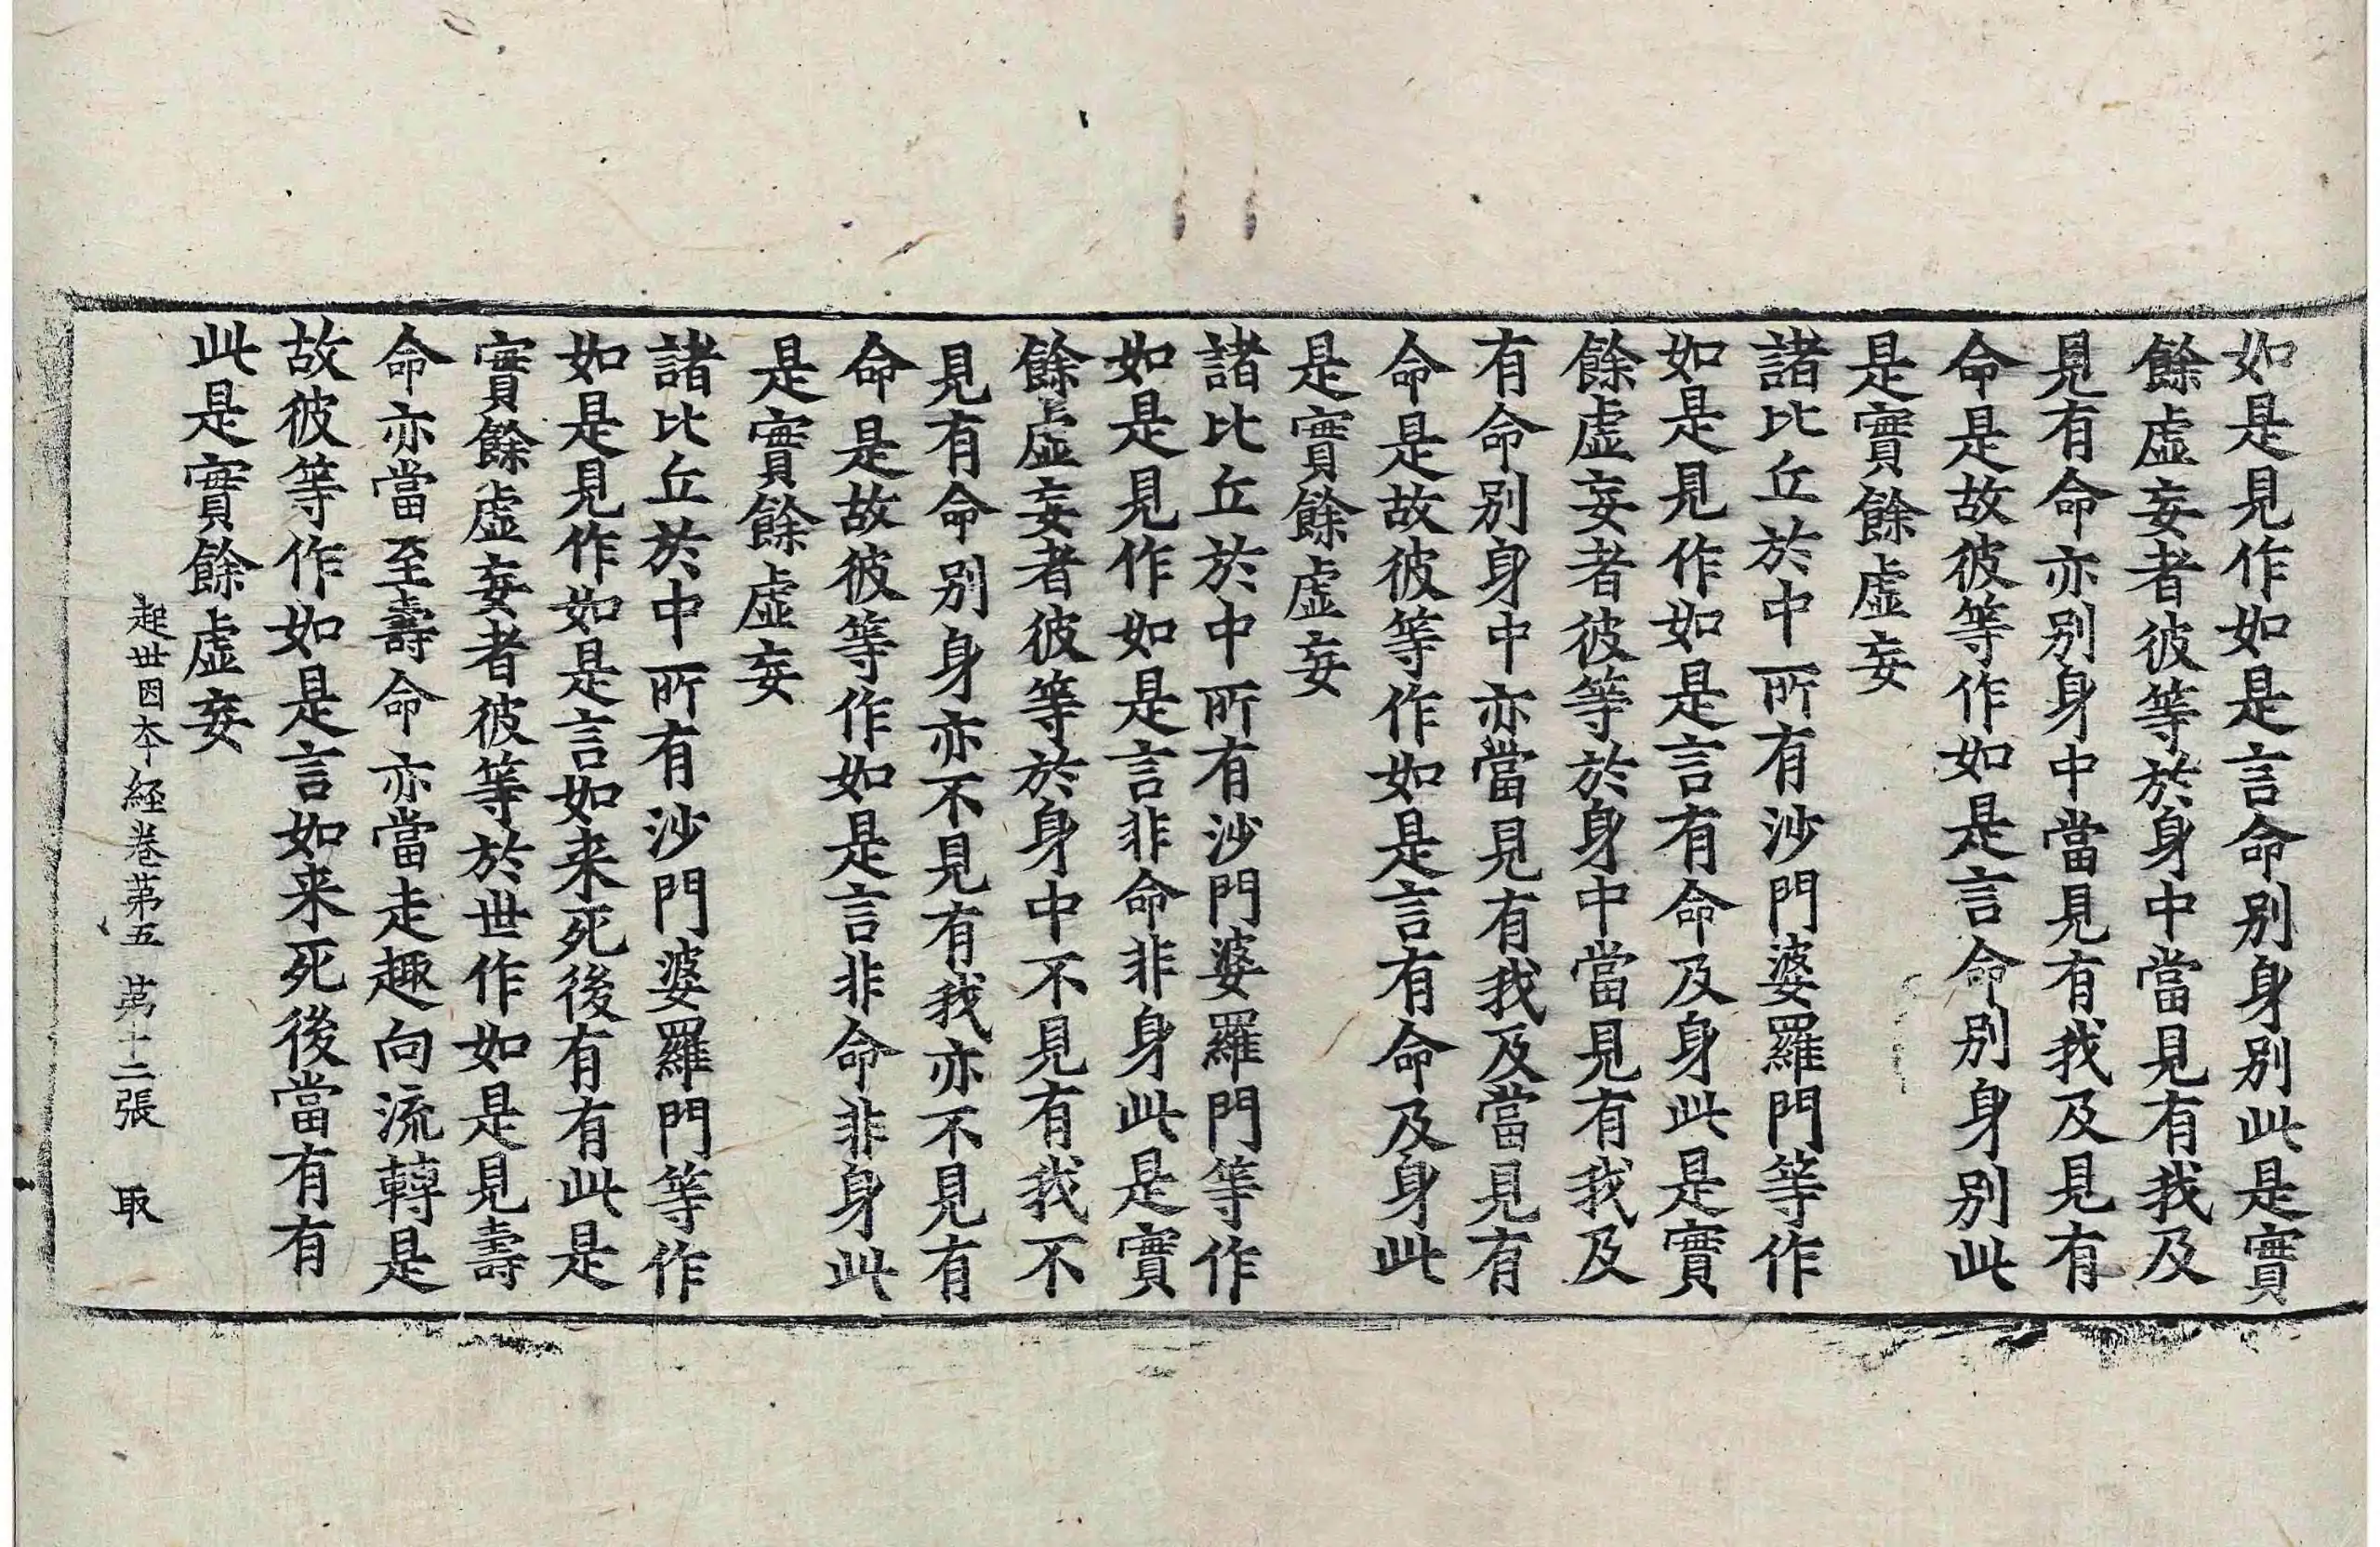 如是見作如是言命別身別此是實
餘虛妄者彼等於身中當見有我及
見有命亦別身中當見有我及見有
命是故彼等作如是言命別身別此
是實餘虛妄
諸比丘於中所有沙門婆羅門等作
如是見作如是言有命及身此是實
餘虛妄者彼等於身中當見有我及
有命別身中亦當見有我及當見有
命是故彼等作如是言有命及身此
是實餘虛妄
諸比丘於中所有沙門婆羅門等作
如是見作如是言非命非身此是實
餘虛妄者彼等於身中不見有我不
見有命別身亦不見有我亦不見有
命是故彼等作如是言非命非身此
是實餘虛妄
諸比丘於中所有沙門婆羅門等作
如是見作如是言如来死後有有此是
實餘虛妄者彼等於世作如是見壽
命亦當至壽命亦當走趣向流轉是
故彼等作如是言如来死後當有有
此是實餘虛妄
起世因本経卷第五 第十二張 取